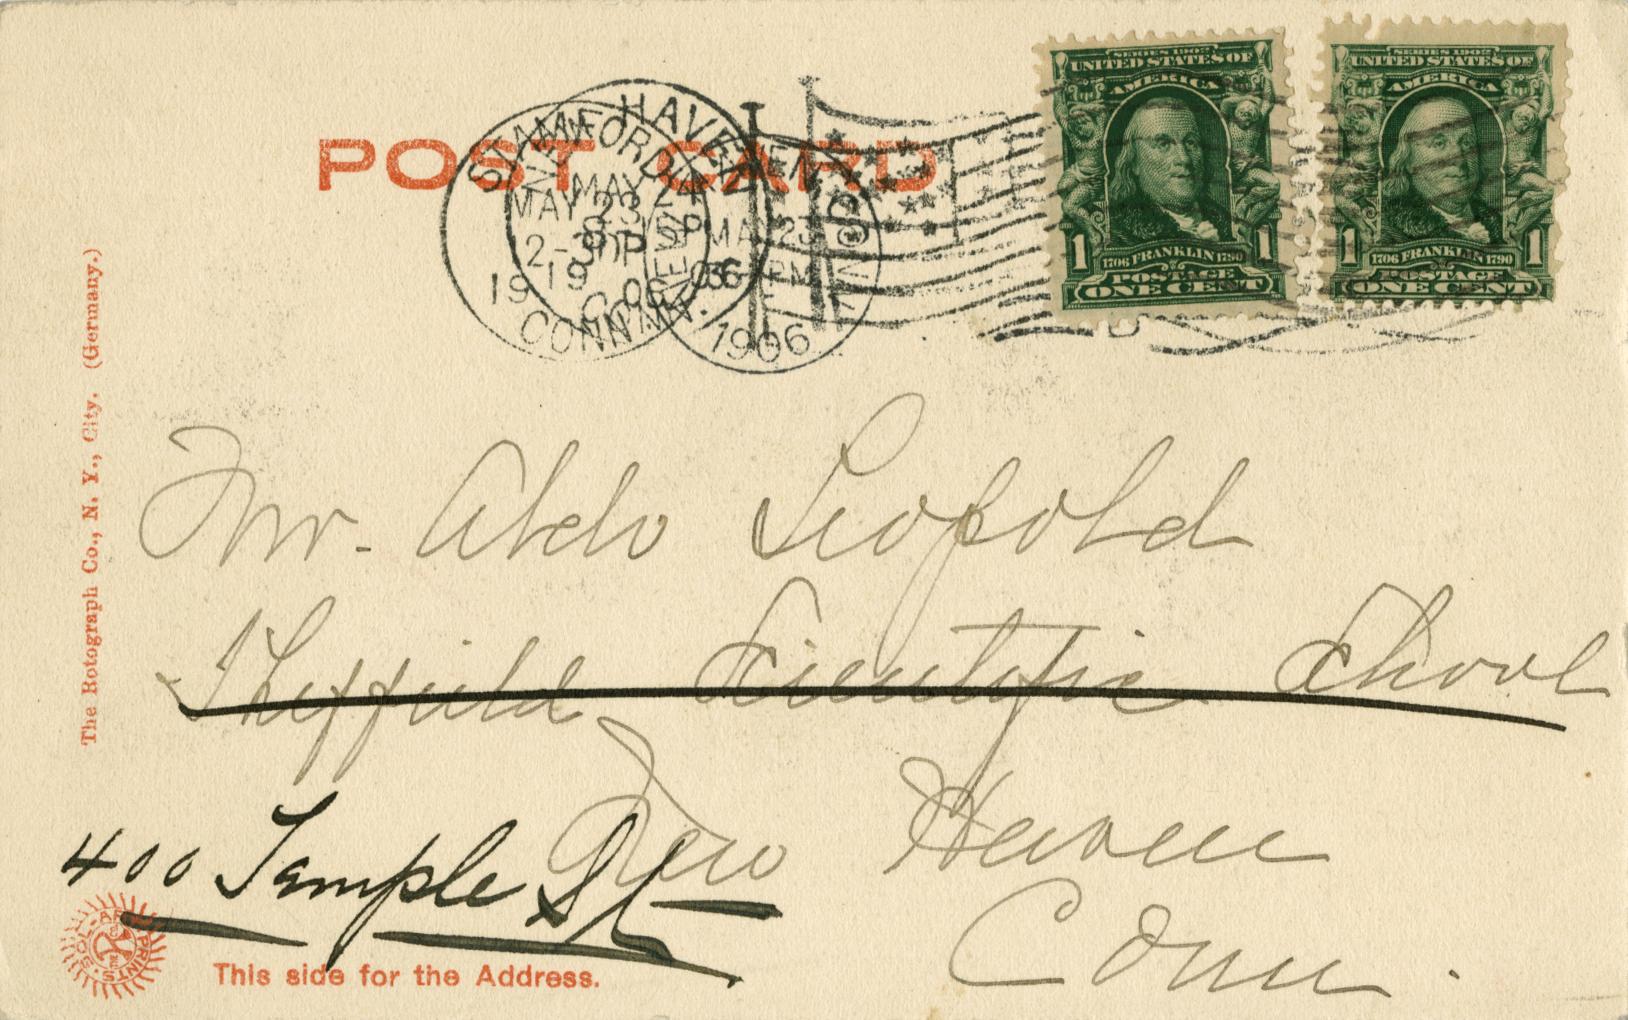 POST CARD
STAMFORD
MAY 23
12-30P
1906
CONN.
NEW HAVEN
MAY 24
CONN.
MAY 23
1906
SERIES 1902
UNITED STATES OF
AMERICA
1 1706 FRANKLIN 1790 1
POSTAGE
ONE CENT
SERIES 1902
UNITED STATES OF
AMERICA
1 1706 FRANKLIN 1790 1
POSTAGE
ONE CENT
The Rotograph Co., N. Y., City. (Germany.)
Mr. Aldo Leopold
Sheffield Scientific School
New Haven
Conn.
400 Temple St
SOL-ART PRINTS
This side for the Address.